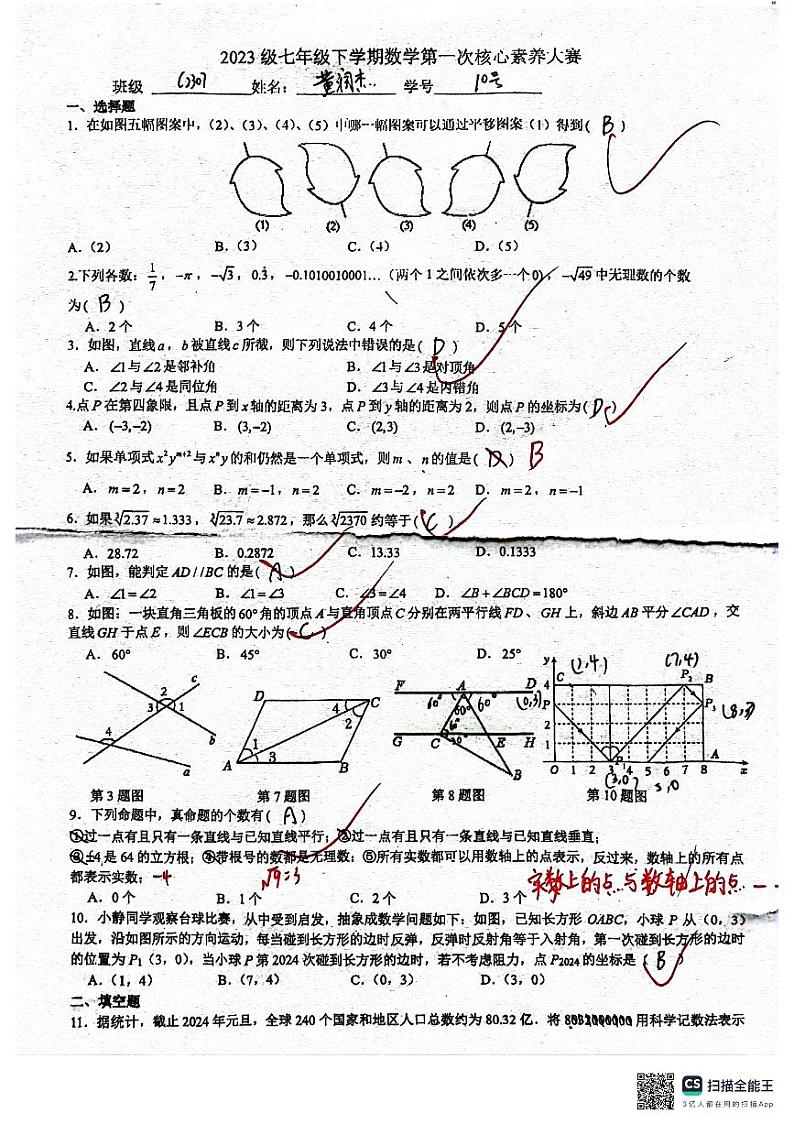 2023级七年级下学期数学第一次核心素养大赛
班级 C2307 姓名: 黄润杰 学号 10号
一、选择题
1. 在如图五幅图案中,(2)、(3)、(4)、(5)中哪一幅图案可以通过平移图案(1)得到( B )
(1) (2) (3) (4) (5)
A.(2) B.(3) C.(4) D.(5)
2.下列各数:1/7,-π,-√3,0.3̇,-0.1010010001…(两个1之间依次多一个0),-√49中无理数的个数
为( B )
A.2个 B.3个 C.4个 D.5个
3.如图,直线a,b被直线c所截,则下列说法中错误的是( D )
A.∠1与∠2是邻补角 B.∠1与∠3是对顶角
C.∠2与∠4是同位角 D.∠3与∠4是内错角
4.点P在第四象限,且点P到x轴的距离为3,点P到y轴的距离为2,则点P的坐标为( D )
A.(-3,-2) B.(3,-2) C.(2,3) D.(2,-3)
5.如果单项式x²yᵐ⁺²与xⁿy的和仍然是一个单项式,则m、n的值是( D ) B
A.m=2,n=2 B.m=-1,n=2 C.m=-2,n=2 D.m=2,n=-1
6.如果∛2.37≈1.333,∛23.7≈2.872,那么∛2370约等于( C )
A.28.72 B.0.2872 C.13.33 D.0.1333
7.如图,能判定AD//BC的是( A )
A.∠1=∠2 B.∠1=∠3 C.∠3=∠4 D.∠B+∠BCD=180°
8.如图:一块直角三角板的60°角的顶点A与直角顶点C分别在两平行线FD、GH上,斜边AB平分∠CAD,交
直线GH于点E,则∠ECB的大小为( C )
A.60° B.45° C.30° D.25°
c 2 3 1 4 b a
D C 4 2 1 3 A B
F A D 60° 60° 60° G C E H B
y (1,4) (7,4) C P₂ B 4 (0,3) P P₃ (8,3) 2 1 A O 1 2 3 P₁ 4 5 6 7 8 x (3,0)
第3题图 第7题图 第8题图 第10题图
9.下列命题中,真命题的个数有( A )
①过一点有且只有一条直线与已知直线平行;②过一点有且只有一条直线与已知直线垂直;
③±4是64的立方根;④带根号的数都是无理数;⑤所有实数都可以用数轴上的点表示,反过来,数轴上的所有点
都表示实数; -4 √9=3 实数上的点与数轴上的点一一
A.0个 B.1个 C.2个 D.3个
10.小静同学观察台球比赛,从中受到启发,抽象成数学问题如下:如图,已知长方形OABC,小球P从(0,3)
出发,沿如图所示的方向运动,每当碰到长方形的边时反弹,反弹时反射角等于入射角,第一次碰到长方形的边时
的位置为P₁(3,0),当小球P第2024次碰到长方形的边时,若不考虑阻力,点P₂₀₂₄的坐标是( B )
A.(1,4) B.(7,4) C.(0,3) D.(3,0)
二、填空题
11.据统计,截止2024年元旦,全球240个国家和地区人口总数约为80.32亿.将8032000000用科学记数法表示
CS 扫描全能王
3亿人都在用的扫描App